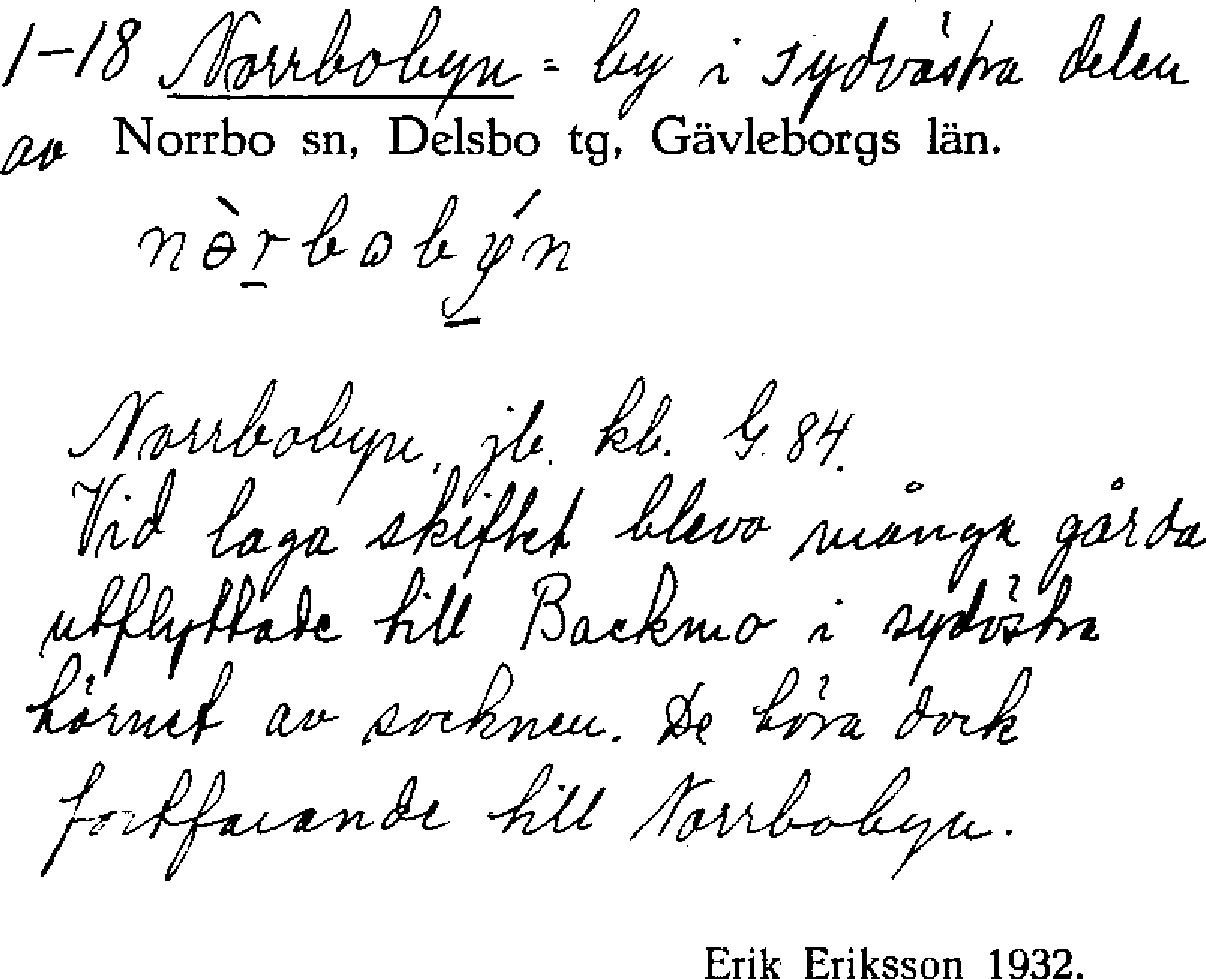 1-18 Norrbobyn = by i sydvästra delen
av Norrbo sn, Delsbo tg, Gävleborgs län.
nɵ̀r̠bɷbý̠n
Norrbobyn, jb. kb. G. 84.
Vid laga skiftet blevo många gårda
utflyttade till Backmo i sydöstra
hörnet av socknen. De höra dock
fortfarande till Norrbobyn.
Erik Eriksson 1932.